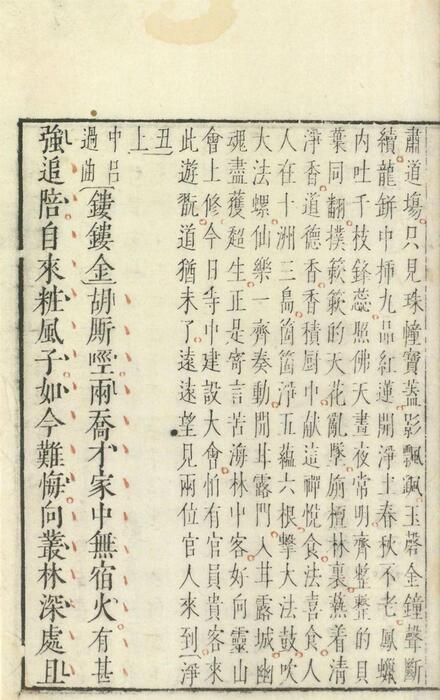 肅道場只見珠幢寶蓋影飄颻玉磬金鐘聲斷
續龍餅中揷九品紅蓮開淨土春秋不老鳳蠟
内吐千枝鋒蕊照佛天晝夜常明齊整整的貝
葉同翻撲簌簌的天花亂墜旃檀林裏爇着清
淨香道德香香積厨中献這禪悅食法喜食人
人在十洲三島箇箇淨五蘊六根擊大法鼓吹
大法螺仙樂一齊奏動開甘露門入甘露城幽
魂盡獲超生正是寄言苦海林中客好向靈山
會上修今日寺中建設大會怕有官員貴客來
此遊翫道猶未了遠遠望見兩位官人來到淨
丑上
中呂過曲鏤鏤金胡厮𠴲兩喬才家中無宿火有甚
強追陪自來粧風子如今難悔向叢林深處且